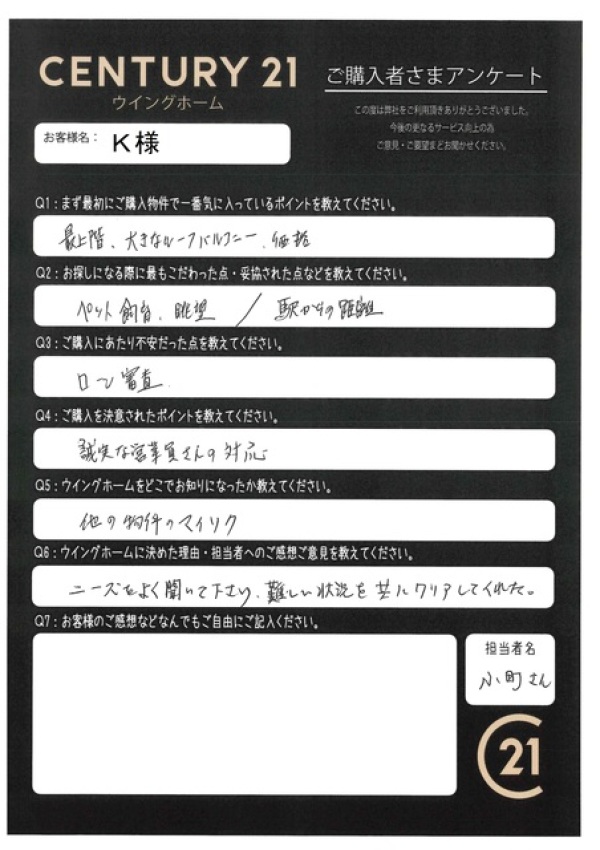 CENTURY 21
ウイングホーム
ご購入者さまアンケート
この度は弊社をご利用頂きありがとうございました。
今後の更なるサービス向上の為
ご意見・ご要望までお聞かせください。
お客様名： K様
Q1：まず最初にご購入物件で一番気に入っているポイントを教えてください。
最上階、大きなルーフバルコニー、価格
Q2：お探しになる際に最もこだわった点・妥協された点などを教えてください。
ペット飼育、眺望 ／ 駅からの距離
Q3：ご購入にあたり不安だった点を教えてください。
ローン審査
Q4：ご購入を決意されたポイントを教えてください。
誠実な営業員さんの対応
Q5：ウイングホームをどこでお知りになったか教えてください。
他の物件のマイソク
Q6：ウイングホームに決めた理由・担当者へのご感想ご意見を教えてください。
ニーズをよく聞いて下さり、難しい状況を共にクリアしてくれた。
Q7：お客様のご感想などなんでもご自由にご記入ください。
担当者名
小町さん
C21